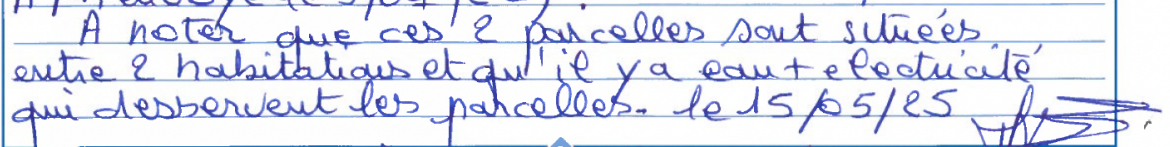 A noter que ces 2 parcelles sont situées
entre 2 habitations et qu'il y a eau + electricité
qui desservent les parcelles. le 15/05/25